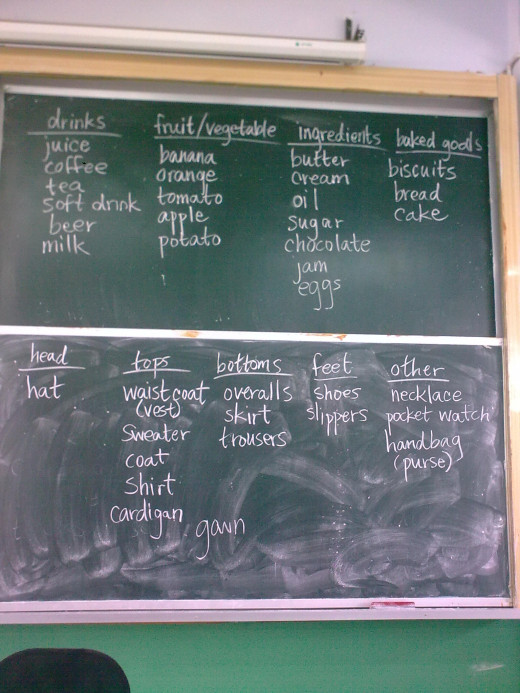 drinks
juice
coffee
tea
soft drink
beer
milk
fruit/vegetable
banana
orange
tomato
apple
potato
ingredients
butter
cream
oil
sugar
chocolate
jam
eggs
baked goods
biscuits
bread
cake
head
hat
tops
waistcoat
(vest)
sweater
coat
shirt
cardigan
gown
bottoms
overalls
skirt
trousers
feet
shoes
slippers
other
necklace
pocket watch
handbag
(purse)